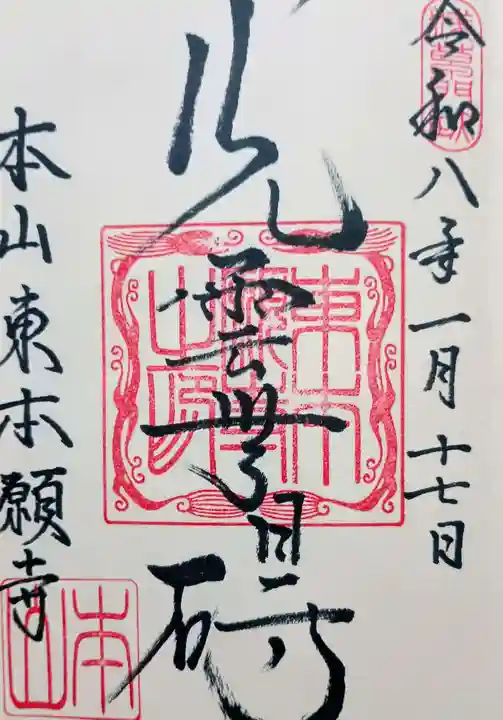 令和八年一月十七日
光雲無碍
本山東本願寺
本山